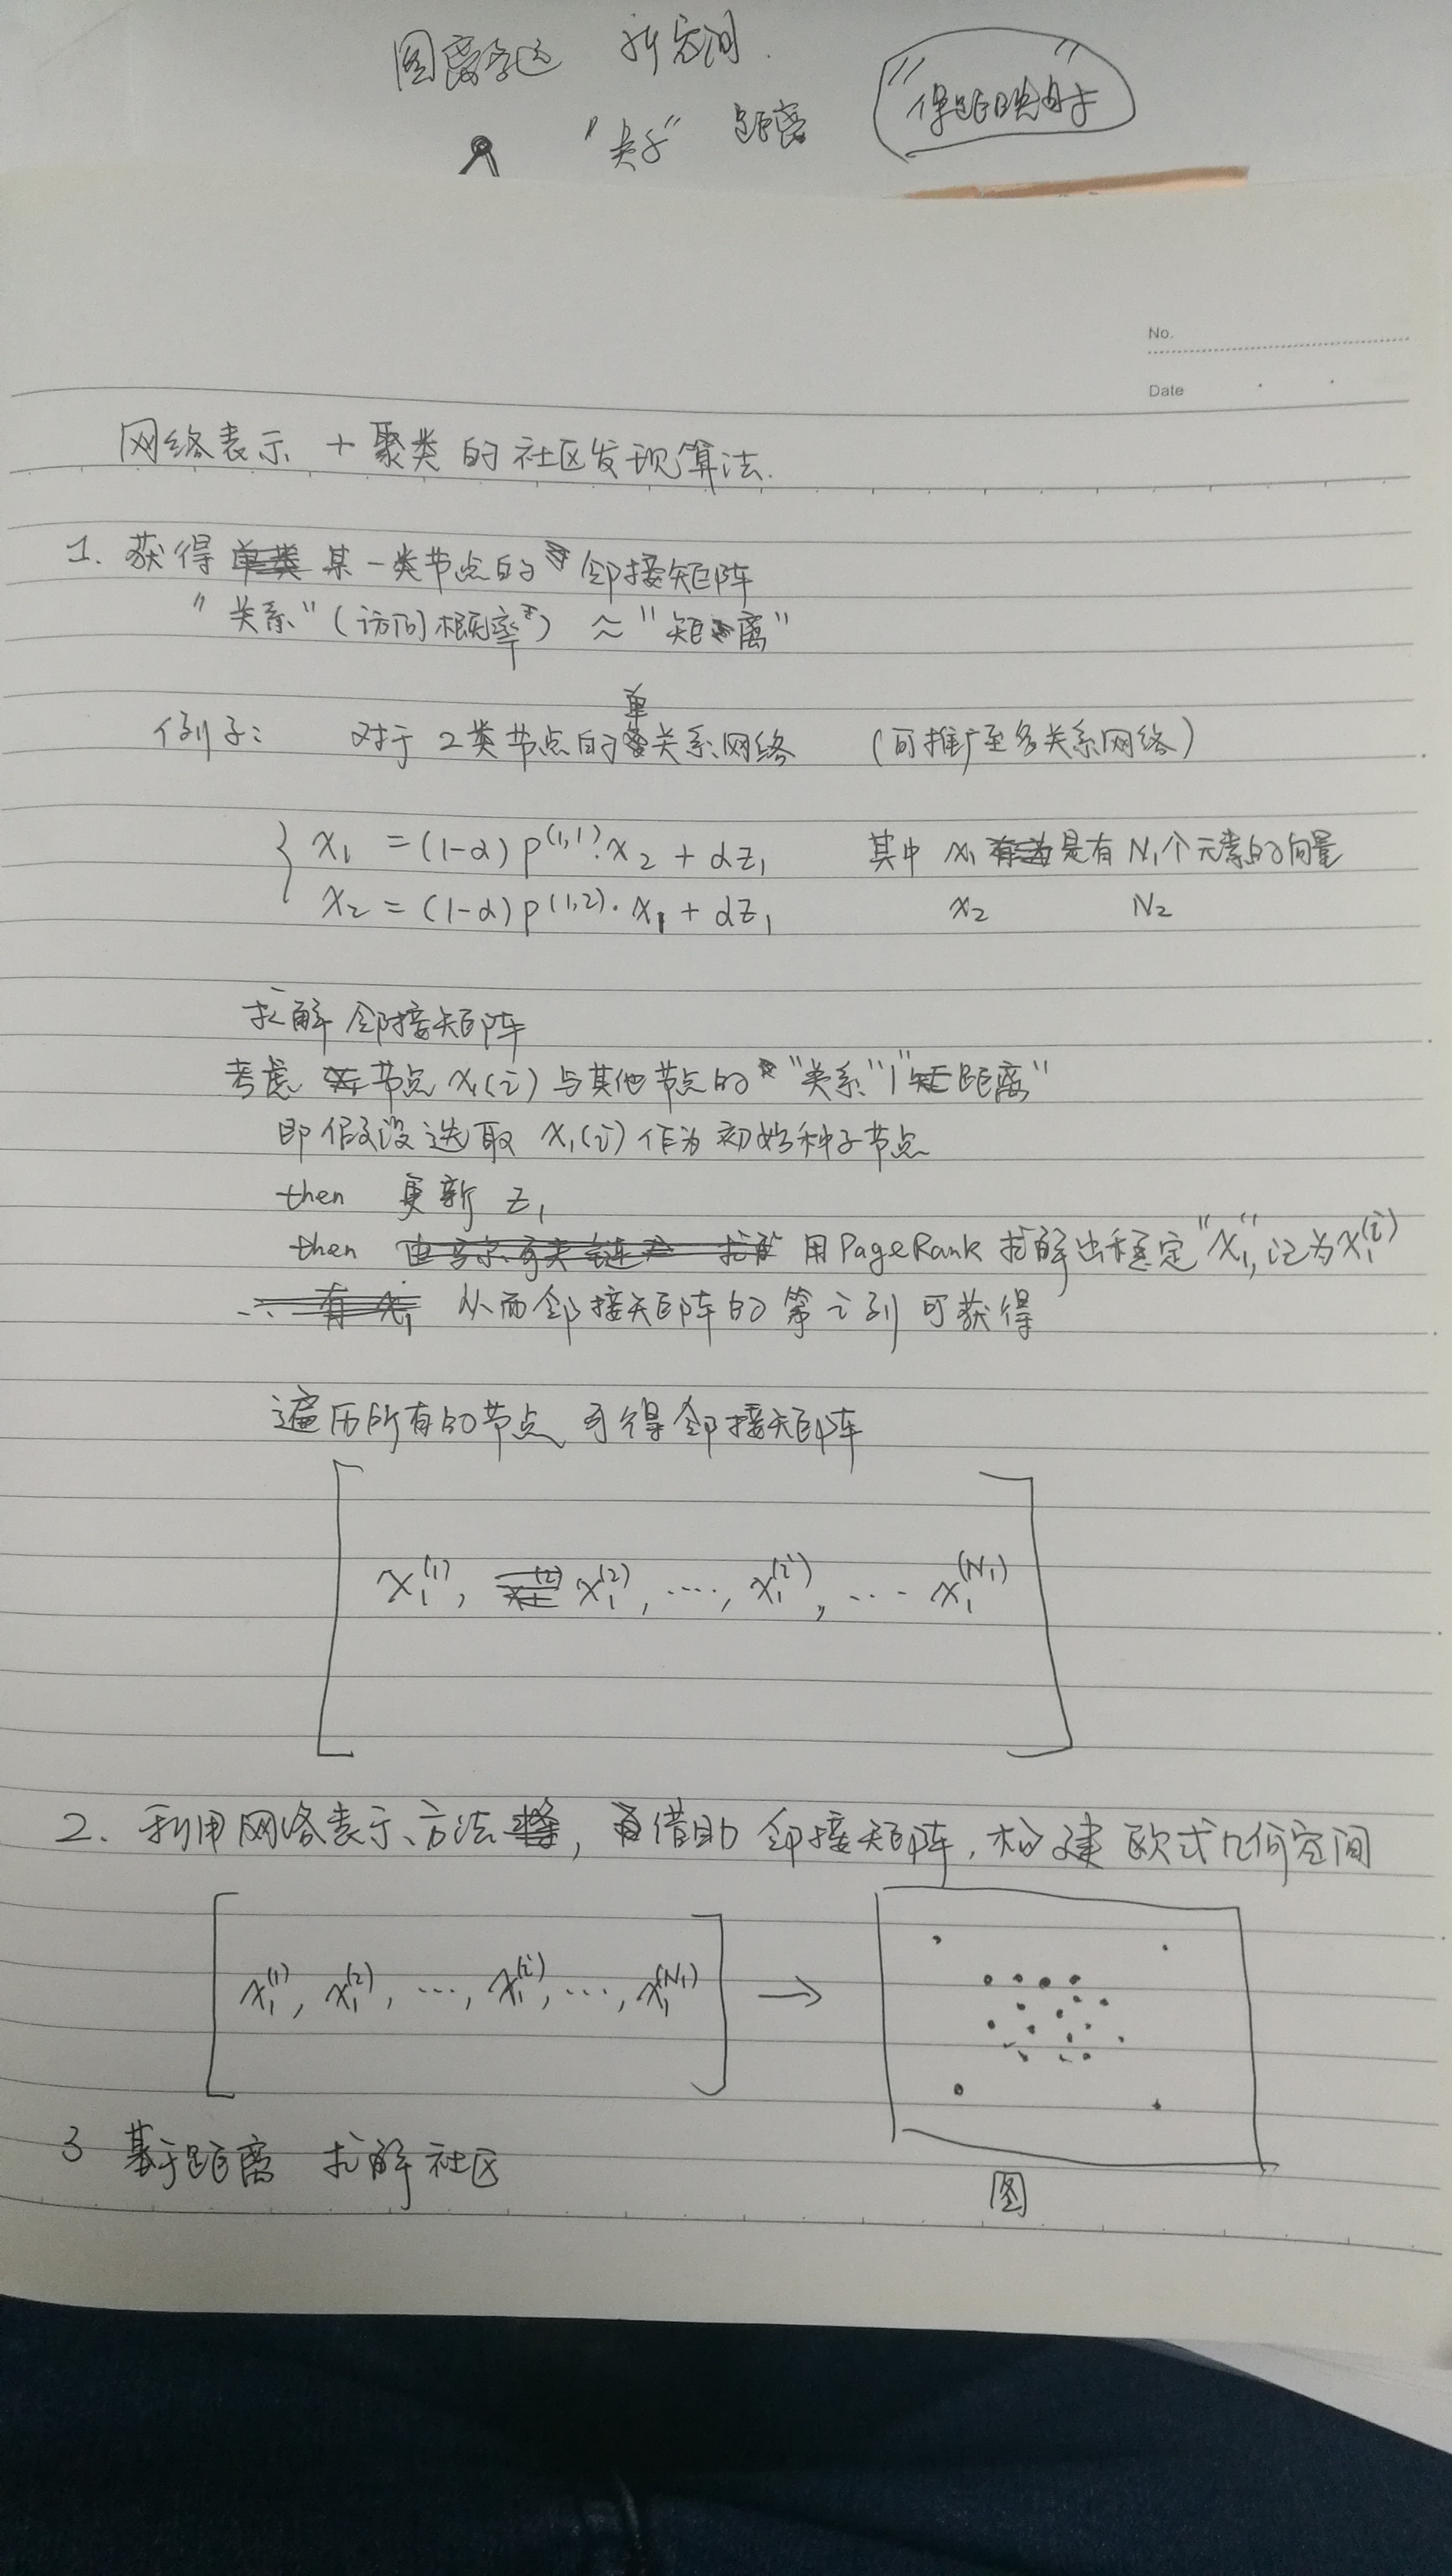 新空间
"关系" 距离
"保距映射"
No.
Date
网络表示 + 聚类的社区发现算法.
1. 获得 某一类节点的邻接矩阵
"关系"(访问概率) ≈ "距离"
单
例子: 对于2类节点的关系网络 (可推广至多关系网络)
x₁ = (1-α) p^(1,1)·x₂ + αz₁ 其中 x₁ 是有 N₁个元素的向量
x₂ = (1-α) p^(1,2)·x₁ + αz₁ x₂ N₂
求解邻接矩阵
考虑 节点 x₁(i) 与其他节点的 "关系" | "距离"
即假设选取 x₁(i) 作为初始种子节点
then 更新 z₁
then 用PageRank 求解出稳定 "x₁", 记为 x₁^(i)
从而邻接矩阵的第 i 列可获得
遍历所有的节点 可得邻接矩阵
x₁^(1), x₁^(2), ...., x₁^(i), ... x₁^(N₁)
2. 利用网络表示方法, 借助邻接矩阵, 构建欧式几何空间
x₁^(1), x₁^(2), ..., x₁^(i), ..., x₁^(N₁) →
3 基于距离 求解社区
图